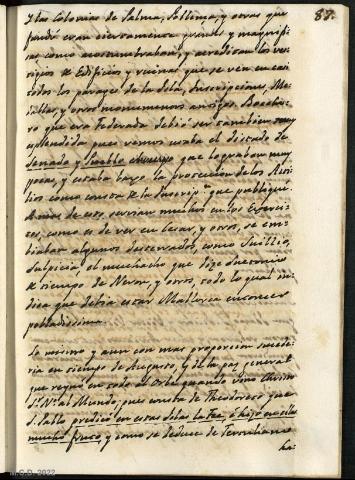 87.
y las Colonias de Palma, Pollensa, y otras que
fundó eran ciertamente grandes y magnifi-
cas como acostumbraban, y acreditan los ves-
tigios de Edificios y ruinas que se ven en casi
todos los parages de la Isla, inscripciones, Me-
dallas, y otros monumentos antiguos. Bocchor-
ro que era Federada debió ser tambien muy
esplendida pues vemos usaba el dictado de
Senado y Pueblo que lo graban muy
pocas, y estaba bajo la proteccion de los
como consta de la Inscripn. que publiqué.
A mas de eso, servian muchos en los Exerci-
tos, como es de ver en Cesar, y otros, se em-
biaban algunos desterrados, como Suillio,
Sulpicia, el muchacho que dize Suetonio
de tiempo de Neron, y otros, todo lo qual in-
dica que debia estar Mallorca entonces
pobladissima.
Lo mismo y aun con mas proporcion sucede-
ria en tiempo de Augusto, y de la paz general
que reynó en todo el Orbe quando vino Christo
Sr. Nro. al Mundo, pues consta de Theodoreto que
Sn. Pablo predicó en estas Islas la Fee, é hizo en ellas
mucho fruto, y como se deduce de Tertuliano
ha-
M.C.D. 2022